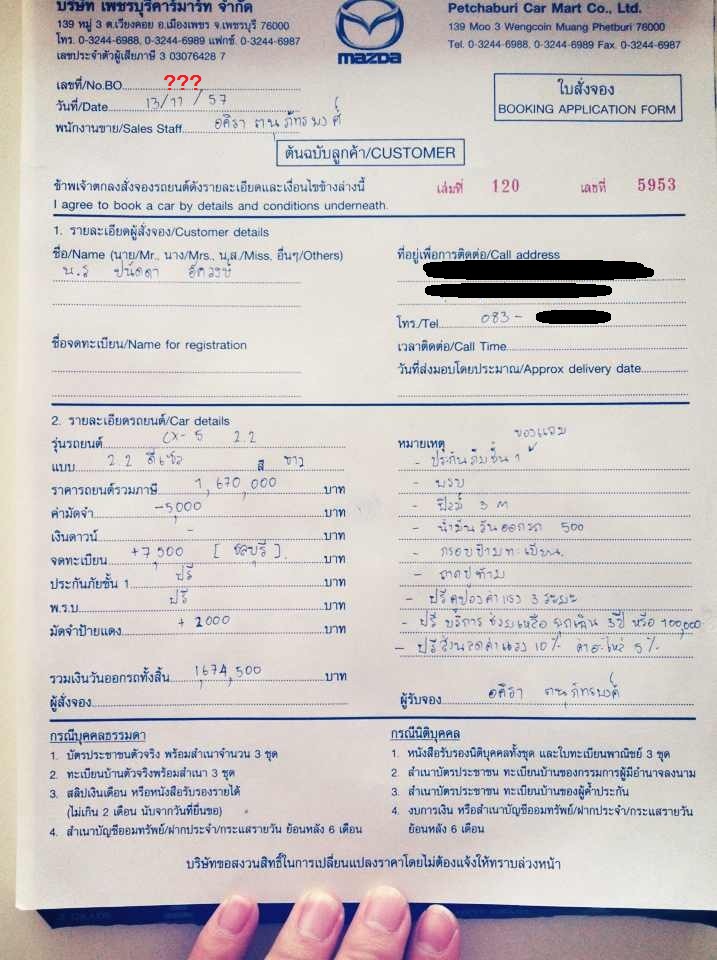 บริษัท เพชรบุรีคาร์มาร์ท จำกัด
139 หมู่ 3 ต.เวียงคอย อ.เมืองเพชร จ.เพชรบุรี 76000
โทร. 0-3244-6988, 0-3244-6989 แฟกซ์. 0-3244-6987
เลขประจำตัวผู้เสียภาษี 3 03076428 7
mazda
Petchaburi Car Mart Co., Ltd.
139 Moo 3 Wengcoin Muang Phetburi 76000
Tel. 0-3244-6988, 0-3244-6989 Fax. 0-3244-6987
เลขที่/No.BO ???
วันที่/Date 13/11/57
พนักงานขาย/Sales Staff
ใบสั่งจอง
BOOKING APPLICATION FORM
ต้นฉบับลูกค้า/CUSTOMER
ข้าพเจ้าตกลงสั่งจองรถยนต์ดังรายละเอียดและเงื่อนไขข้างล่างนี้ เล่มที่ 120 เลขที่ 5953
I agree to book a car by details and conditions underneath.
1. รายละเอียดผู้สั่งจอง/Customer details
ชื่อ/Name (นาย/Mr., นาง/Mrs., น.ส./Miss, อื่นๆ/Others)
น.ส ปนัดดา
ชื่อจดทะเบียน/Name for registration
ที่อยู่เพื่อการติดต่อ/Call address
โทร./Tel. 083-
เวลาติดต่อ/Call Time
วันที่ส่งมอบโดยประมาณ/Approx delivery date
2. รายละเอียดรถยนต์/Car details
รุ่นรถยนต์ CX-5 2.2
แบบ 2.2 ดีเซล สี ขาว
ราคารถยนต์รวมภาษี 1,670,000 บาท
ค่ามัดจำ -5000 บาท
เงินดาวน์ - บาท
จดทะเบียน +7,500 [ชลบุรี] บาท
ประกันภัยชั้น 1 ฟรี บาท
พ.ร.บ ฟรี บาท
มัดจำป้ายแดง + 2000 บาท
รวมเงินวันออกรถทั้งสิ้น 1,674,500 บาท
ผู้สั่งจอง
หมายเหตุ ของแถม
- ประกันภัยชั้น 1
- พรบ
- ฟิล์ม 3 M
- น้ำมันวันออกรถ 500
- กรอบป้ายทะเบียน
- ถาดปูท้าย
- ฟรีคูปองค่าแรง 3 ระยะ
- ฟรี บริการ ช่วยเหลือ ฉุกเฉิน 3 ปี หรือ 100,000
- ฟรี ส่วนลดค่าแรง 10% ค่าอะไหล่ 5%
ผู้รับจอง
กรณีบุคคลธรรมดา
1. บัตรประชาชนตัวจริง พร้อมสำเนาจำนวน 3 ชุด
2. ทะเบียนบ้านตัวจริงพร้อมสำเนา 3 ชุด
3. สลิปเงินเดือน หรือหนังสือรับรองรายได้
(ไม่เกิน 2 เดือน นับจากวันที่ยื่นขอ)
4. สำเนาบัญชีออมทรัพย์/ฝากประจำ/กระแสรายวัน ย้อนหลัง 6 เดือน
กรณีนิติบุคคล
1. หนังสือรับรองนิติบุคคลทั้งชุด และใบทะเบียนพาณิชย์ 3 ชุด
2. สำเนาบัตรประชาชน ทะเบียนบ้านของกรรมการผู้มีอำนาจลงนาม
3. สำเนาบัตรประชาชน ทะเบียนบ้านของผู้ค้ำประกัน
4. งบการเงิน หรือสำเนาบัญชีออมทรัพย์/ฝากประจำ/กระแสรายวัน
ย้อนหลัง 6 เดือน
บริษัทขอสงวนสิทธิ์ในการเปลี่ยนแปลงราคาโดยไม่ต้องแจ้งให้ทราบล่วงหน้า